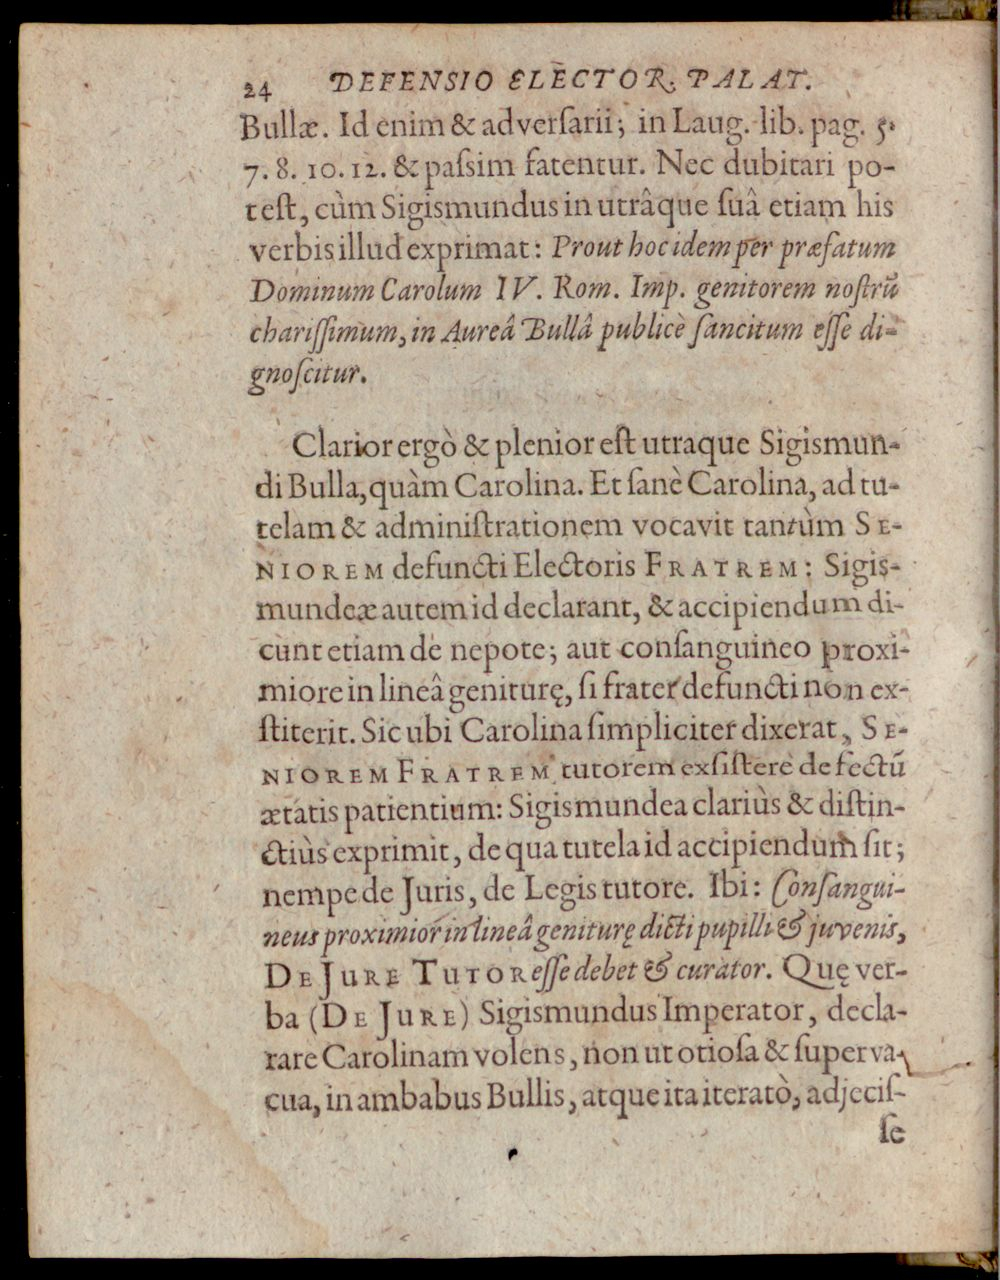 24 DEFENSIO ELECTOR. PALAT.
Bullæ. Id enim & adversarii; in Laug. lib. pag. 5.
7. 8. 10. 12. & passim fatentur. Nec dubitari po-
test, cùm Sigismundus in utrâque suâ etiam his
verbis illud exprimat: Prout hoc idem per præfatum
Dominum Carolum IV. Rom. Imp. genitorem nostrū
charissimum, in Aureâ Bullâ publicè sancitum esse di-
gnoscitur.
Clarior ergò & plenior est utraque Sigismun-
di Bulla, quàm Carolina. Et sanè Carolina, ad tu-
telam & administrationem vocavit tantùm SE-
NIOREM defuncti Electoris FRATREM: Sigis-
mundeæ autem id declarant, & accipiendum di-
cunt etiam de nepote; aut consanguineo proxi-
miore in lineâ geniturę, si frater defuncti non ex-
stiterit. Sic ubi Carolina simpliciter dixerat, SE-
NIOREM FRATREM tutorem exsistere defectū
ætatis patientium: Sigismundea clariùs & distin-
ctiùs exprimit, de qua tutela id accipiendum sit;
nempe de Juris, de Legis tutore. Ibi: Consangui-
neus proximior in lineâ geniturę dicti pupilli & juvenis,
DE JURE TUTOR esse debet & curator. Quę ver-
ba (DE JURE) Sigismundus Imperator, decla-
rare Carolinam volens, non ut otiosa & superva-
cua, in ambabus Bullis, atque ita iteratò, adjecis-
se